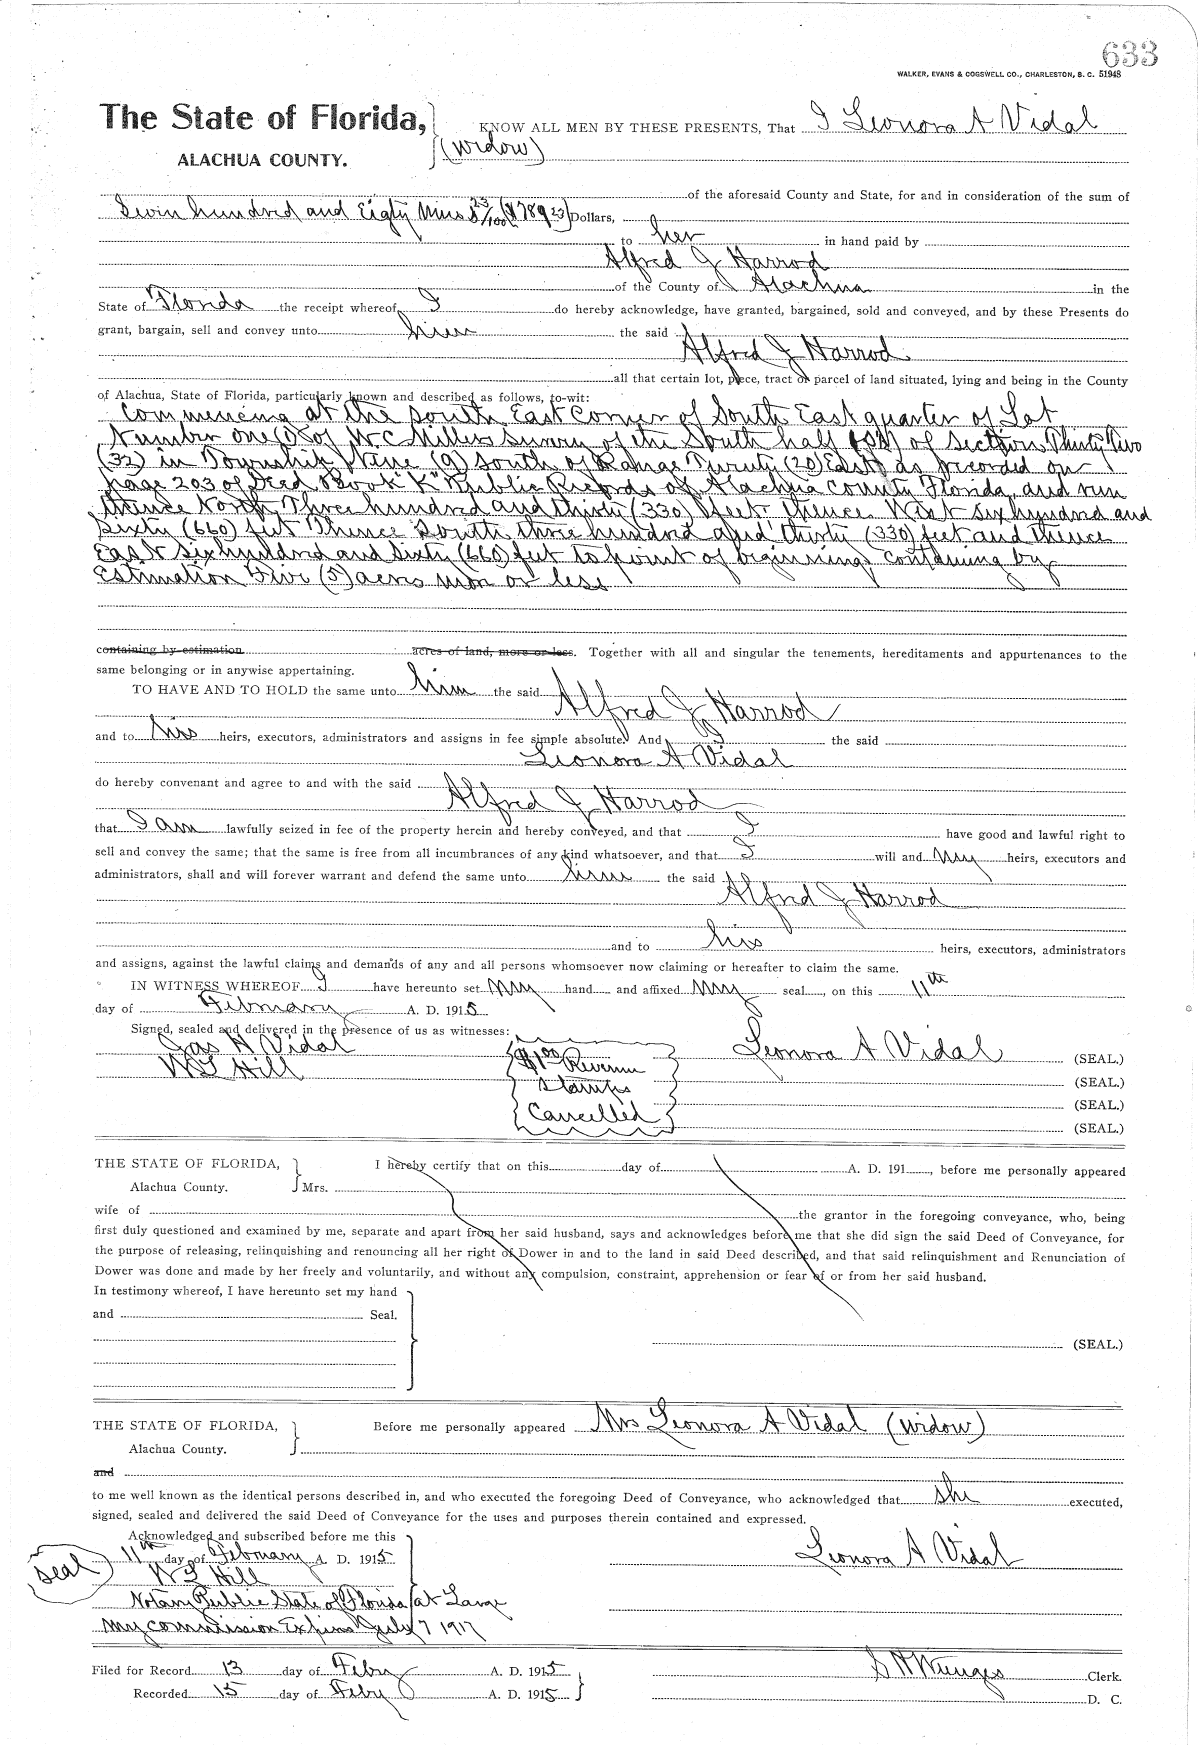 633
WALKER, EVANS & COGSWELL CO., CHARLESTON, S. C. 51948
The State of Florida,
ALACHUA COUNTY.
KNOW ALL MEN BY THESE PRESENTS, That I Leonora A Vidal
(widow)
of the aforesaid County and State, for and in consideration of the sum of
Seven hundred and Eigty Nine 23/100 ($789 23) Dollars,
to her in hand paid by
Alfred J Harrod
of the County of Alachua in the
State of Florida the receipt whereof I do hereby acknowledge, have granted, bargained, sold and conveyed, and by these Presents do
grant, bargain, sell and convey unto him the said
Alfred J Harrod
all that certain lot, piece, tract or parcel of land situated, lying and being in the County
of Alachua, State of Florida, particularly known and described as follows, to-wit:
Commencing at the South East Corner of South East quarter of Lot
Number one (1) of W.C Millers Survey of the South half (S½) of Section Thirty Two
(32) in Township Nine (9) South of Range Twenty (20) East as recorded on
page 203 of Deed Book "K" Public Records of Alachua County Florida, and run
thence North Three hundred and thirty (330) feet thence West six hundred and
Sixty (660) feet Thence South three hundred and thirty (330) feet and thence
East Six hundred and Sixty (660) feet to point of beginning, containing by
Estimation Five (5) acres more or less
containing by estimation acres of land, more or less. Together with all and singular the tenements, hereditaments and appurtenances to the
same belonging or in anywise appertaining.
TO HAVE AND TO HOLD the same unto him the said
Alfred J Harrod
and to his heirs, executors, administrators and assigns in fee simple absolute. And I the said
Leonora A Vidal
do hereby convenant and agree to and with the said
Alfred J Harrod
that I am lawfully seized in fee of the property herein and hereby conveyed, and that I have good and lawful right to
sell and convey the same; that the same is free from all incumbrances of any kind whatsoever, and that I will and my heirs, executors and
administrators, shall and will forever warrant and defend the same unto him the said
Alfred J Harrod
and to his heirs, executors, administrators
and assigns, against the lawful claims and demands of any and all persons whomsoever now claiming or hereafter to claim the same.
IN WITNESS WHEREOF I have hereunto set my hand and affixed my seal, on this 11th
day of February A. D. 1915
Signed, sealed and delivered in the presence of us as witnesses:
Jas H Vidal
W S Hill
$1.00 Revenue
Stamps
Cancelled
Leonora A Vidal (SEAL.)
(SEAL.)
(SEAL.)
(SEAL.)
THE STATE OF FLORIDA,
Alachua County.
I hereby certify that on this day of A. D. 191, before me personally appeared
Mrs.
wife of the grantor in the foregoing conveyance, who, being
first duly questioned and examined by me, separate and apart from her said husband, says and acknowledges before me that she did sign the said Deed of Conveyance, for
the purpose of releasing, relinquishing and renouncing all her right of Dower in and to the land in said Deed described, and that said relinquishment and Renunciation of
Dower was done and made by her freely and voluntarily, and without any compulsion, constraint, apprehension or fear of or from her said husband.
In testimony whereof, I have hereunto set my hand
and Seal.
(SEAL.)
THE STATE OF FLORIDA,
Alachua County.
Before me personally appeared Mrs Leonora A Vidal (widow)
and
to me well known as the identical persons described in, and who executed the foregoing Deed of Conveyance, who acknowledged that she executed,
signed, sealed and delivered the said Deed of Conveyance for the uses and purposes therein contained and expressed.
Acknowledged and subscribed before me this
11th day of February A. D. 1915
Seal
W S Hill
Notary Public State of Florida at Large
My commission Expires July 7 1917
Leonora A Vidal
Filed for Record 13 day of Feby A. D. 1915
Recorded 15 day of Feby A. D. 1915
S H Wienges Clerk.
D. C.